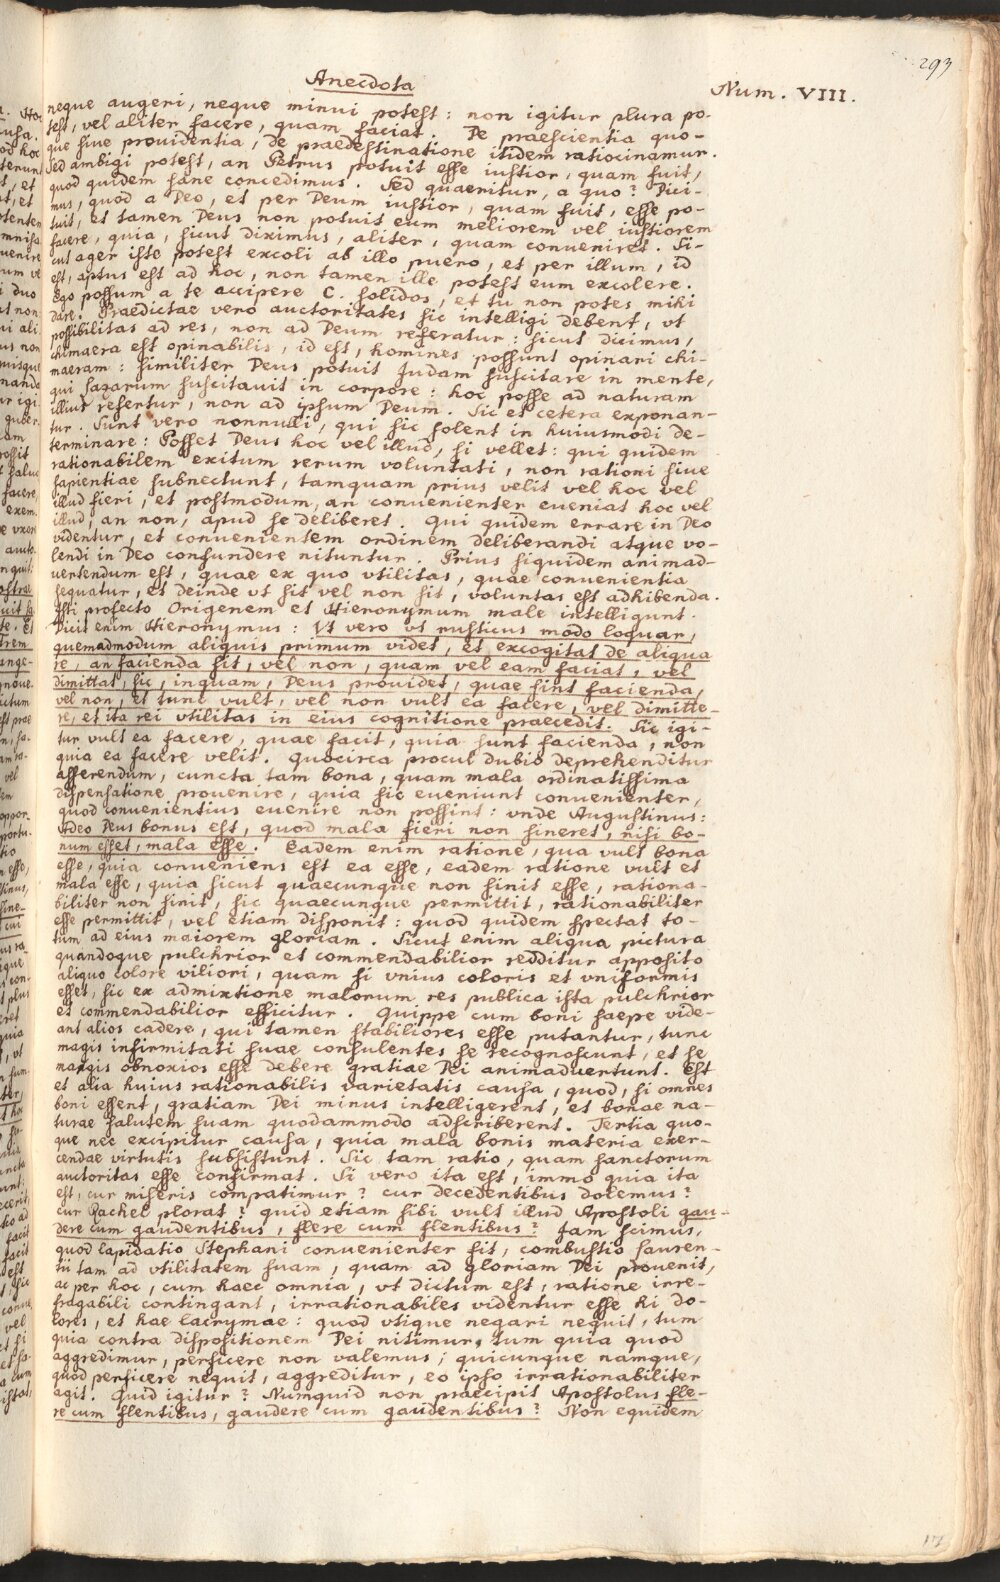 293
Anecdota
Num. VIII.
neque augeri, neque minui potest: non igitur plura po-
test, vel aliter facere, quam faciat. De praescientia quo-
que sive providentia, de praedestinatione itidem ratiocinamur.
Sed ambigi potest, an Petrus potuit esse iustior, quam fuit,
quod quidem sane concedimus. Sed quaeritur, a quo? Dici-
mus, quod a Deo, et per Deum iustior, quam fuit, esse po-
tuit, et tamen Deus non potuit eum meliorem vel iustiorem
facere, quia, sicut diximus, aliter, quam conveniret. Si-
cut ager iste potest excoli ab illo puero, et per illum, id
est, aptus est ad hoc, non tamen ille potest eum excolere.
Ego possum a te accipere C. solidos, et tu non potes mihi
dare. Praedictae vero auctoritates sic intelligi debent, vt
possibilitas ad res, non ad Deum referatur: sicut dicimus,
chimaera est opinabilis, id est, homines possunt opinari chi-
maeram: similiter Deus potuit Judam suscitare in mente,
qui Lazarum suscitauit in corpore: hoc posse ad naturam
illius refertur, non ad ipsum Deum. Sic et cetera exponan-
tur. Sunt vero nonnulli, qui sic solent in huiusmodi de-
terminare: Posset Deus hoc vel illud, si vellet: qui quidem
rationabilem exitum rerum voluntati, non rationi siue
sapientiae subnectunt, tamquam prius velit vel hoc vel
illud fieri, et postmodum, an conuenienter eueniat hoc vel
illud, an non, apud se deliberet. Qui quidem errare in Deo
videntur, et conuenientem ordinem deliberandi atque vo-
lendi in Deo confundere nituntur. Prius siquidem animad-
uertendum est, quae ex quo vtilitas, quae conuenientia
sequatur, et deinde vt sit vel non sit, voluntas est adhibenda.
Isti profecto Origenem et Hieronymum male intelligunt.
Dicit enim Hieronymus: Vt vero vt rusticus modo loquar,
quemadmodum aliquis primum videt, et excogitat de aliqua
re, an facienda sit, vel non, quam vel eam faciat, vel
dimittat, sic, inquam, Deus prouidet, quae sint facienda,
vel non, et tunc vult, vel non vult ea facere, vel dimitte-
re, et ita rei vtilitas in eius cognitione praecedit. Sic igi-
tur vult ea facere, quae facit, quia sunt facienda, non
quia ea facere velit. Quocirca procul dubio deprehenditur
asserendum, cuncta tam bona, quam mala ordinatissima
dispensatione prouenire, quia sic eueniunt conuenienter,
quod conuenientius euenire non possint: vnde Augustinus:
Adeo Deus bonus est, quod mala fieri non sineret, nisi bo-
num esset, mala esse. Eadem enim ratione, qua vult bona
esse, quia conueniens est ea esse, eadem ratione vult et
mala esse, quia sicut quaecunque non sinit esse, rationa-
biliter non sinit, sic quaecunque permittit, rationabiliter
esse permittit, vel etiam disponit: quod quidem spectat to-
tum ad eius maiorem gloriam. Sicut enim aliqua pictura
quandoque pulchrior et commendabilior redditur apposito
aliquo colore viliori, quam si vnius coloris et vniformis
esset, sic ex admixtione malorum res publica ista pulchrior
et commendabilior efficitur. Quippe cum boni saepe vide-
ant alios cadere, qui tamen stabiliores esse putantur, tunc
magis infirmitati suae consulentes se recognoscunt, et se
magis obnoxios esse debere gratiae Dei animaduertunt. Est
et alia huius rationabilis varietatis causa, quod, si omnes
boni essent, gratiam Dei minus intelligerent, et bonae na-
turae salutem suam quodammodo adscriberent. Tertia quo-
que nec excipitur causa, quia mala bonis materia exer-
cendae virtutis subsistunt. Sic tam ratio, quam sanctorum
auctoritas esse confirmat. Si vero ita est, immo quia ita
est, cur miseris compatimur? cur decedentibus dolemus?
cur Rachel plorat? quid etiam sibi vult illud Apostoli gau-
dere cum gaudentibus, flere cum flentibus? Jam scimus,
quod lapidatio Stephani conuenienter sit, combustio Lauren-
tii tam ad vtilitatem suam, quam ad gloriam Dei prouenit,
ac per hoc, cum haec omnia, vt dictum est, ratione irre-
fragabili contingant, irrationabiles videntur esse hi do-
lores, et hae lacrymae: quod vtique negari nequit, tum
quia contra dispositionem Dei nitimur, tum quia quod
aggredimur, perficere non valemus; quicunque namque,
quod perficere nequit, aggreditur, eo ipso irrationabiliter
agit. Quid igitur? Numquid non praecipit Apostolus fle-
re cum flentibus, gaudere cum gaudentibus? Non equidem